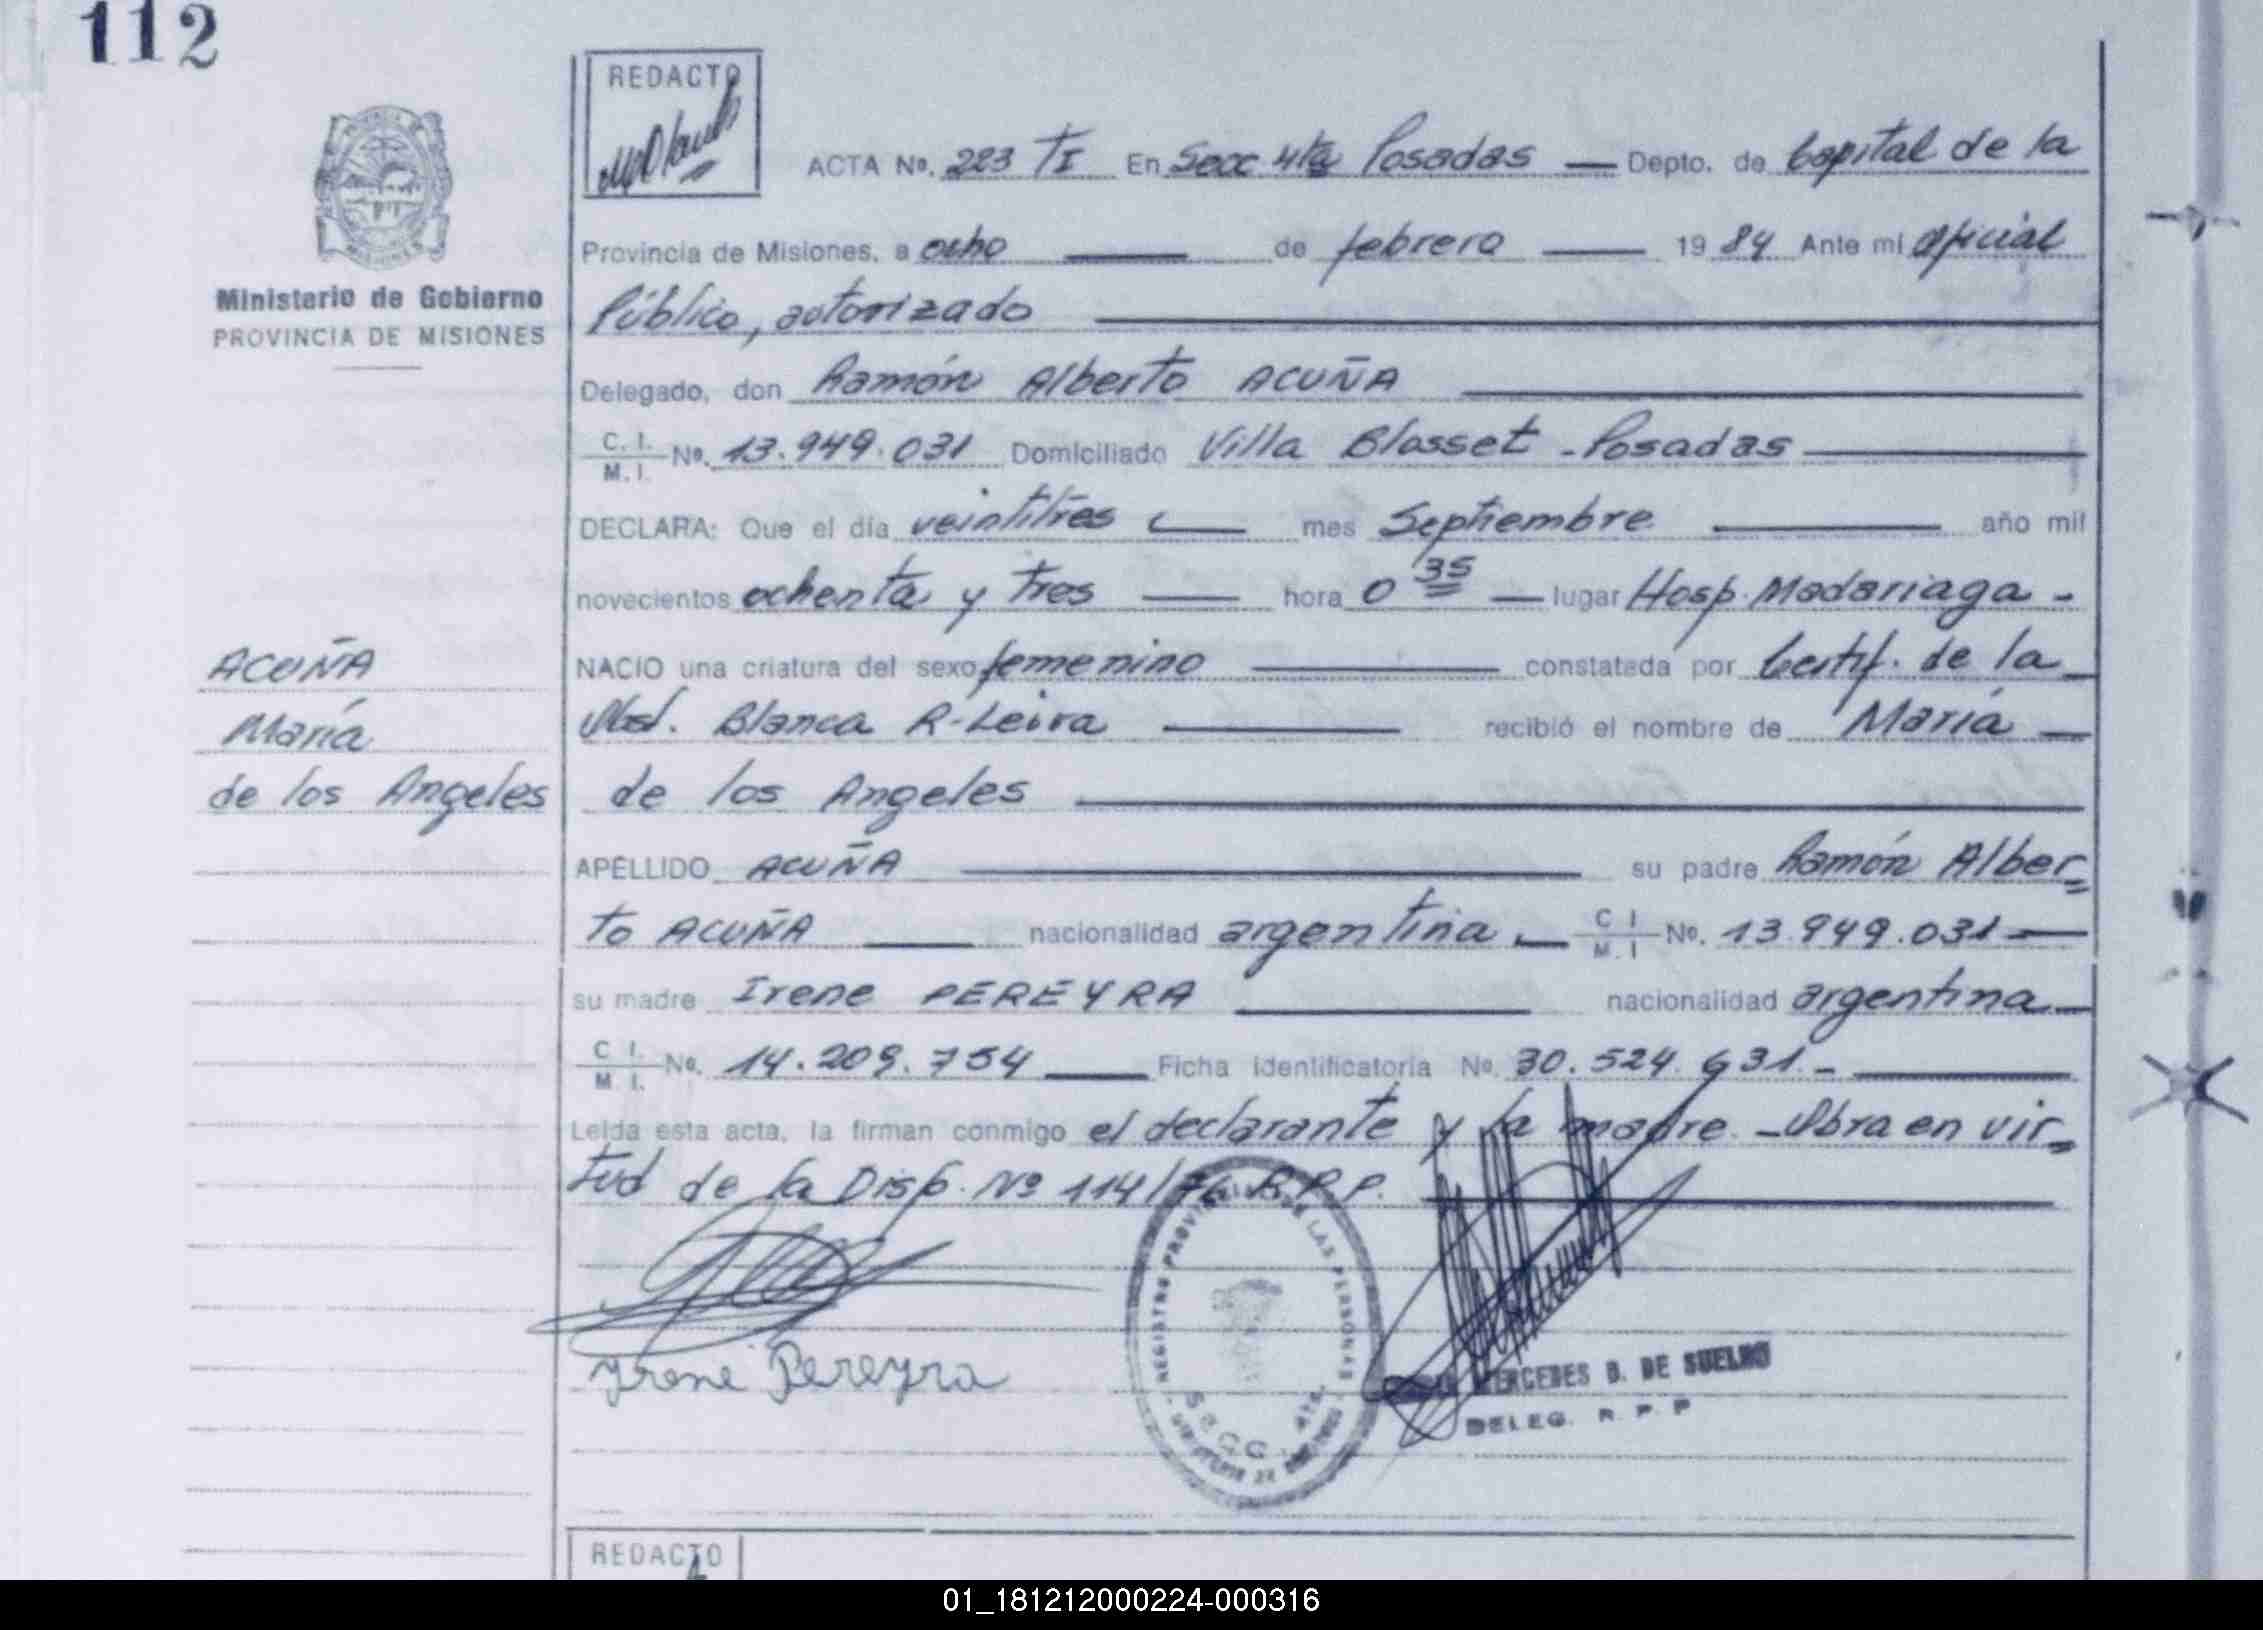 112
REDACTO
ACTA Nº. 223 TI En Secc 4ta Posadas — Depto. de Capital de la
Provincia de Misiones, a ocho — de febrero — 1984 Ante mí Oficial
Ministerio de Gobierno
PROVINCIA DE MISIONES
Público, autorizado
Delegado, don Ramón Alberto ACUÑA
C. I. / M. I. Nº. 13.949.031 Domiciliado Villa Blosset - Posadas
DECLARA: Que el día veintitrés — mes Septiembre — año mil
novecientos ochenta y tres — hora 0 35 — lugar Hosp. Madariaga -
NACIO una criatura del sexo femenino — constatada por Certif. de la
Obst. Blanca R. Leiva — recibió el nombre de María —
de los Angeles
ACUÑA
María
de los Angeles
APELLIDO ACUÑA — su padre Ramón Alber=
to ACUÑA — nacionalidad argentina — C I / M. I Nº. 13.949.031 —
su madre Irene PEREYRA — nacionalidad argentina —
C I. / M. I. Nº. 14.209.754 — Ficha identificatoria Nº 30.524.631.-
Leída esta acta, la firman conmigo el declarante y la madre. - Obra en vir=
tud de la Disp. Nº 114/76 R.P.P.
Yrene Pereyra
REGISTRO PROVINCIAL DE LAS PERSONAS
Secc. 4ta.
MERCEDES B. DE SUELDO
DELEG. R. P. P
REDACTO
01_181212000224-000316